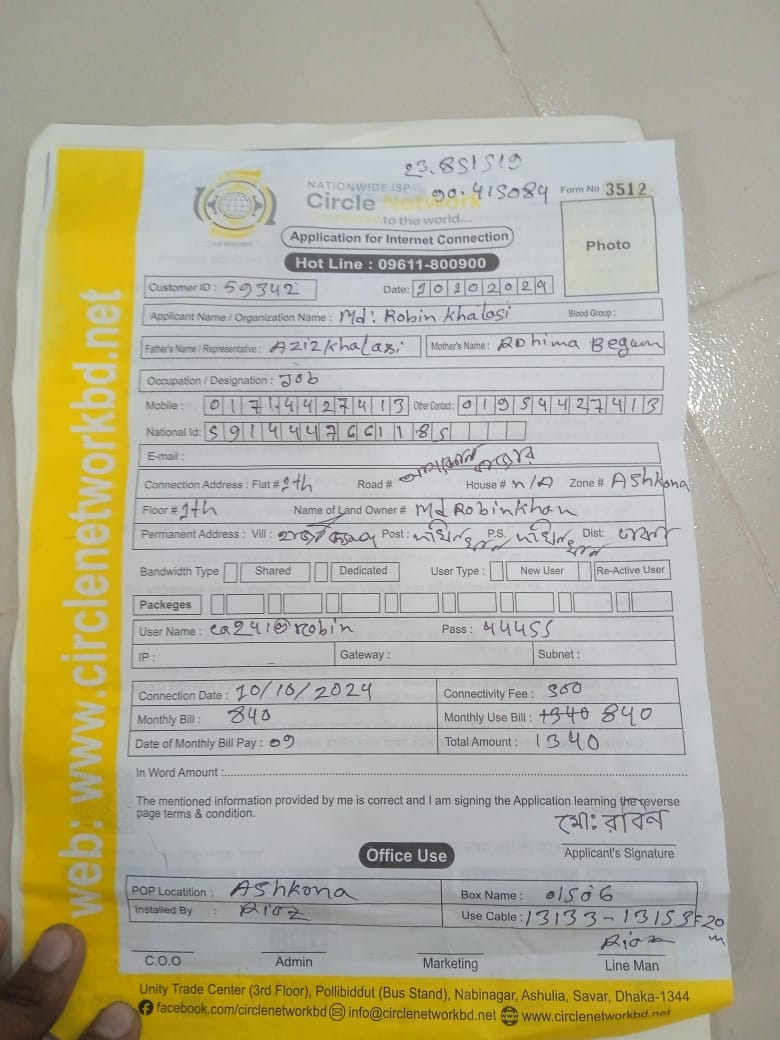 23.851519
90.415084
NATIONWIDE ISP
Circle Network
Connected to the world....
Form No 3512
Application for Internet Connection
Photo
Hot Line : 09611-800900
Customer ID : 59342 Date: 10102024
Applicant Name / Organization Name : Md: Robin Khalasi Blood Group :
Father's Name / Representative : Aziz Khalasi Mother's Name : Rohima Begum
Occupation / Designation : Job
Mobile : 01714427413 Other Contact : 01954427413
National Id: 5914447661185
E-mail :
Connection Address : Flat # 1th Road # বাজার House # n/A Zone # Ashkona
Floor # 1th Name of Land Owner # Md Robin Khan
Permanent Address : Vill : Post : দক্ষিনখান P.S. দক্ষিনখান Dist: ঢাকা
Bandwidth Type Shared Dedicated User Type : New User Re-Active User
Packeges
User Name : ca241@robin Pass : 44455
IP : Gateway : Subnet :
Connection Date : 10/10/2024 Connectivity Fee : 500
Monthly Bill : 840 Monthly Use Bill : 1340 840
Date of Monthly Bill Pay : 09 Total Amount : 1340
In Word Amount :
The mentioned information provided by me is correct and I am signing the Application learning the reverse
page terms & condition.
মো: রবিন
Applicant's Signature
Office Use
POP Locatition : Ashkona Box Name : 01506
Installed By : Riaz Use Cable : 13133-13153=20m
Riaz
C.O.O Admin Marketing Line Man
Unity Trade Center (3rd Floor), Pollibiddut (Bus Stand), Nabinagar, Ashulia, Savar, Dhaka-1344
facebook.com/circlenetworkbd info@circlenetworkbd.net www.circlenetworkbd.net
web: www.circlenetworkbd.net